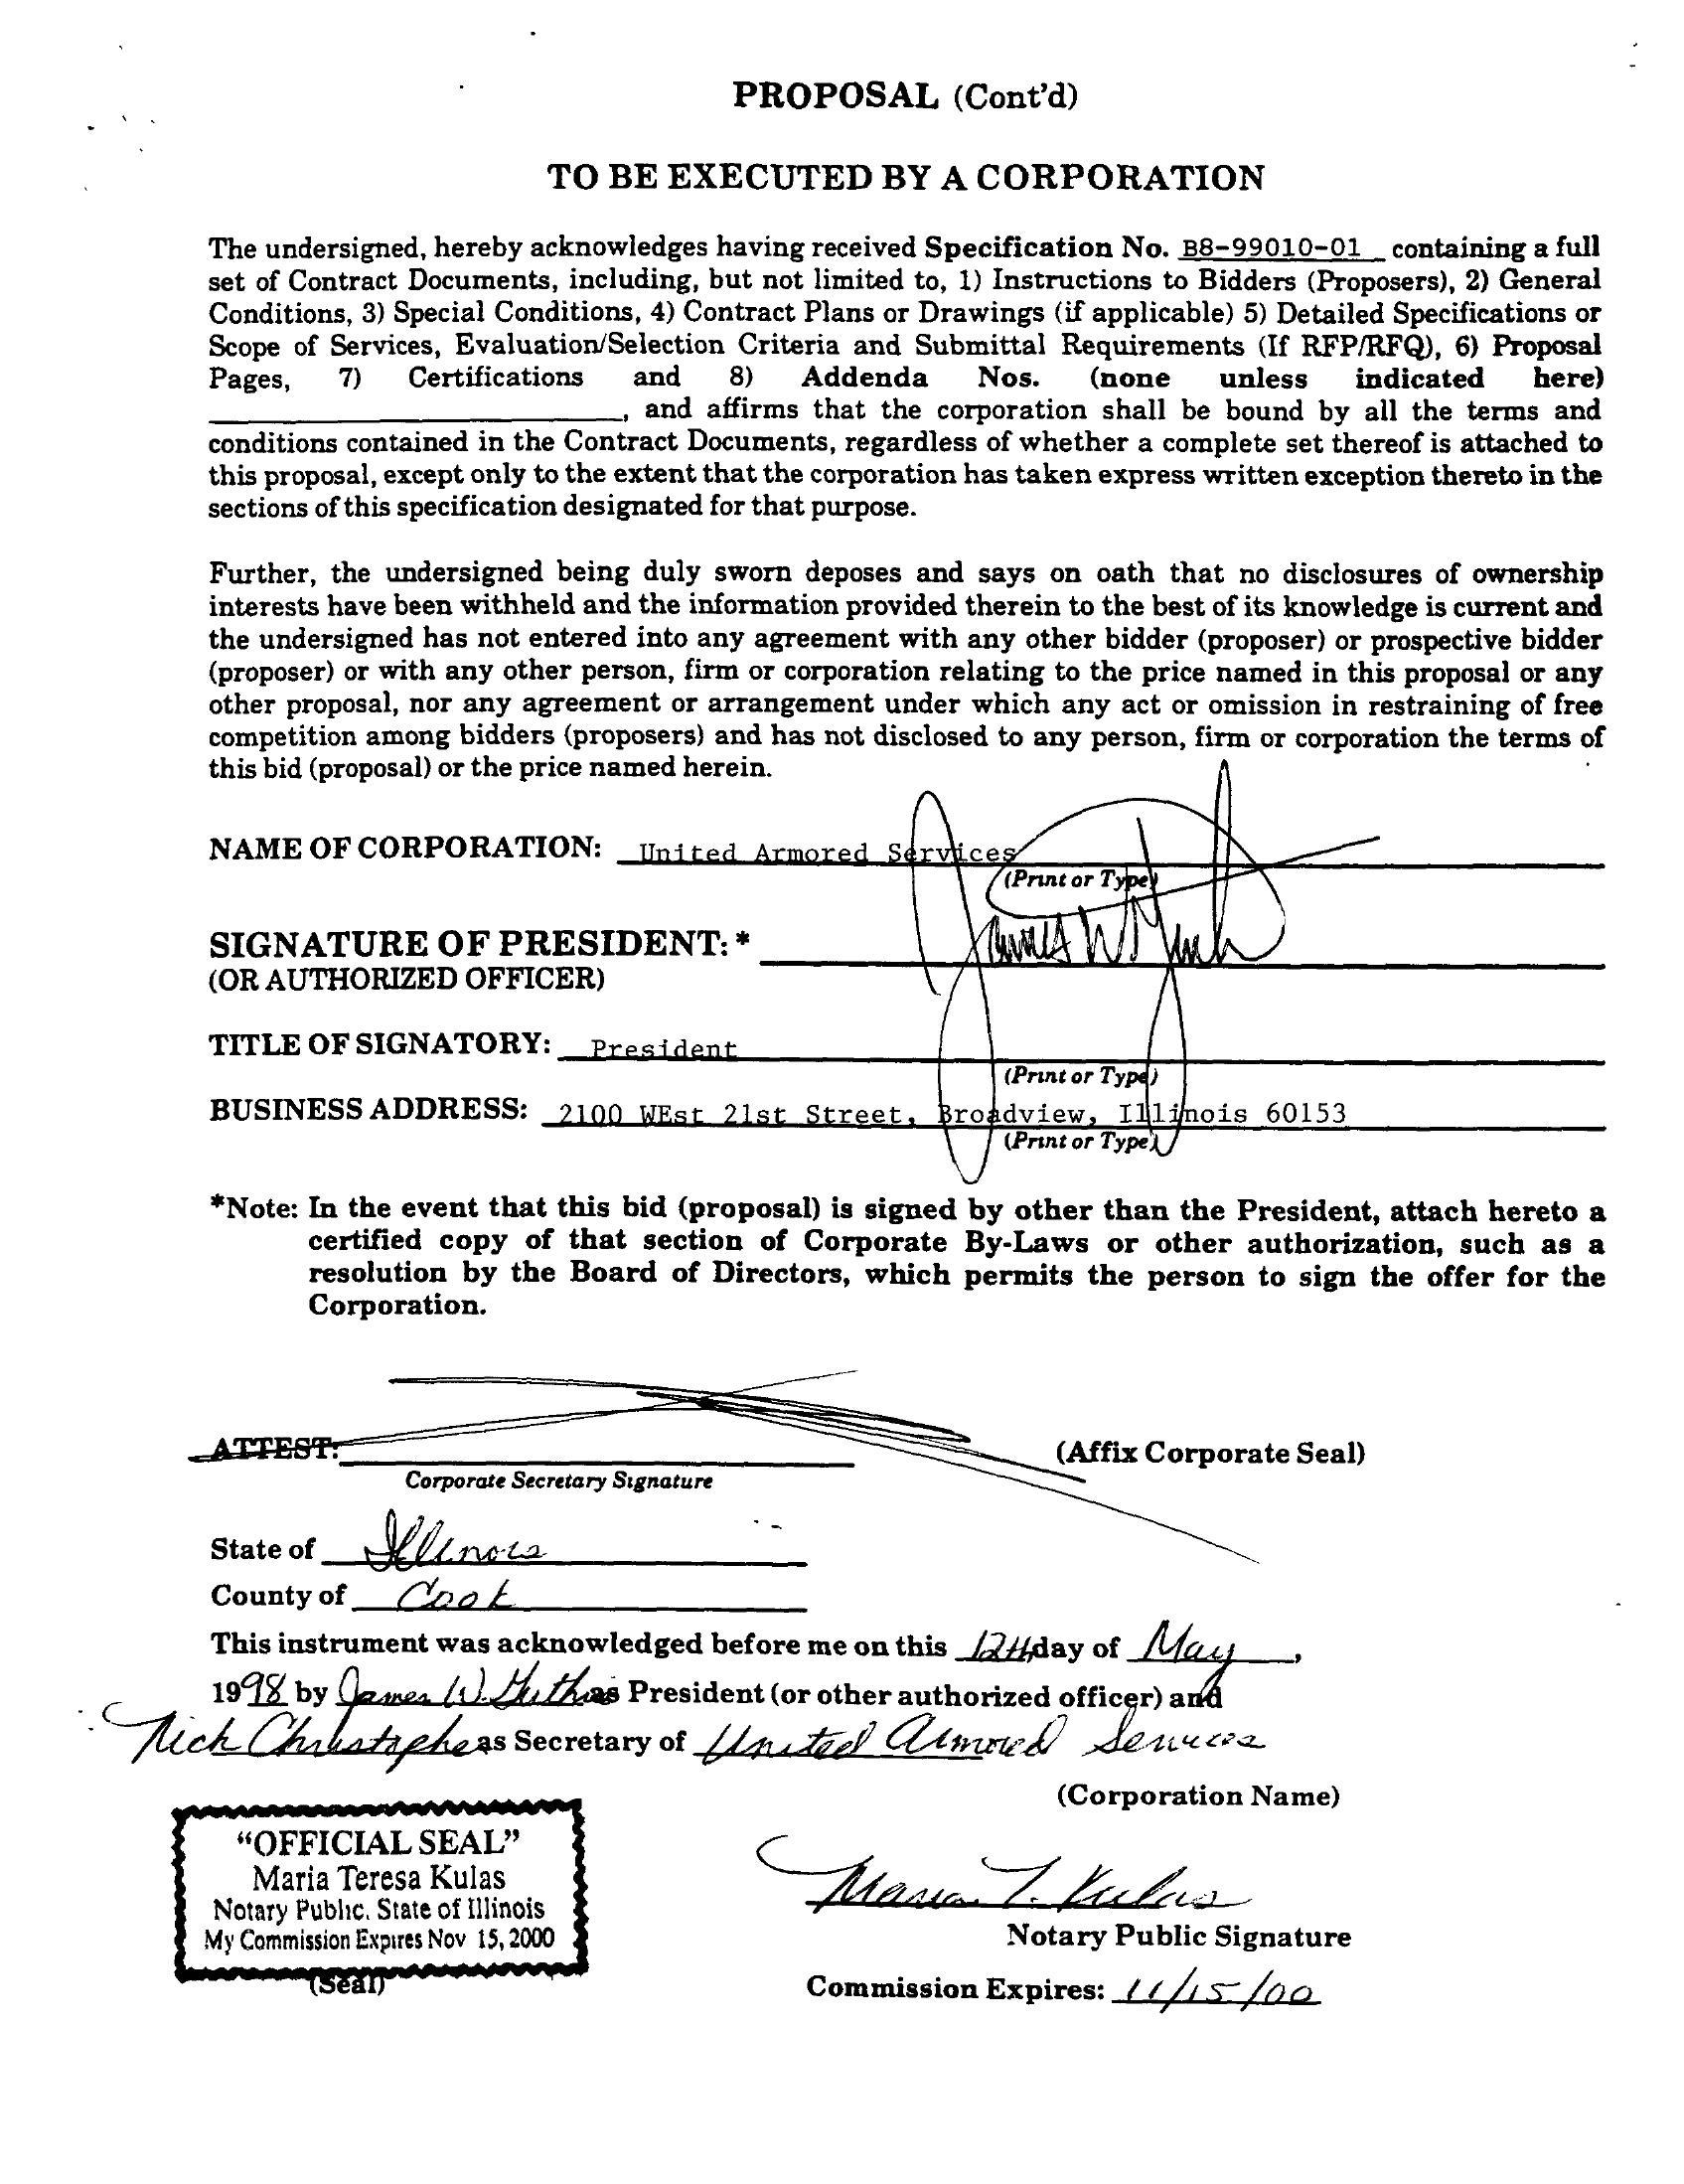 PROPOSAL (Cont'd)
TO BE EXECUTED BY A CORPORATION
The undersigned, hereby acknowledges having received Specification No. B8-99010-01 containing a full
set of Contract Documents, including, but not limited to, 1) Instructions to Bidders (Proposers), 2) General
Conditions, 3) Special Conditions, 4) Contract Plans or Drawings (if applicable) 5) Detailed Specifications or
Scope of Services, Evaluation/Selection Criteria and Submittal Requirements (If RFP/RFQ), 6) Proposal
Pages, 7) Certifications and 8) Addenda Nos. (none unless indicated here)
, and affirms that the corporation shall be bound by all the terms and
conditions contained in the Contract Documents, regardless of whether a complete set thereof is attached to
this proposal, except only to the extent that the corporation has taken express written exception thereto in the
sections of this specification designated for that purpose.
Further, the undersigned being duly sworn deposes and says on oath that no disclosures of ownership
interests have been withheld and the information provided therein to the best of its knowledge is current and
the undersigned has not entered into any agreement with any other bidder (proposer) or prospective bidder
(proposer) or with any other person, firm or corporation relating to the price named in this proposal or any
other proposal, nor any agreement or arrangement under which any act or omission in restraining of free
competition among bidders (proposers) and has not disclosed to any person, firm or corporation the terms of
this bid (proposal) or the price named herein.
NAME OF CORPORATION: United Armored Services
(Print or Type)
SIGNATURE OF PRESIDENT:* James W
(OR AUTHORIZED OFFICER)
TITLE OF SIGNATORY: President
(Print or Type)
BUSINESS ADDRESS: 2100 WEst 21st Street, Broadview, Illinois 60153
(Print or Type)
*Note: In the event that this bid (proposal) is signed by other than the President, attach hereto a
certified copy of that section of Corporate By-Laws or other authorization, such as a
resolution by the Board of Directors, which permits the person to sign the offer for the
Corporation.
ATTEST: (Affix Corporate Seal)
Corporate Secretary Signature
State of Illinois
County of Cook
This instrument was acknowledged before me on this 12th day of May,
1998 by James W. as President (or other authorized officer) and
Nick as Secretary of United Armored Services
(Corporation Name)
"OFFICIAL SEAL"
Maria Teresa Kulas
Notary Public, State of Illinois
My Commission Expires Nov 15, 2000
(Seal)
Maria T. Kulas
Notary Public Signature
Commission Expires: 11/15/00